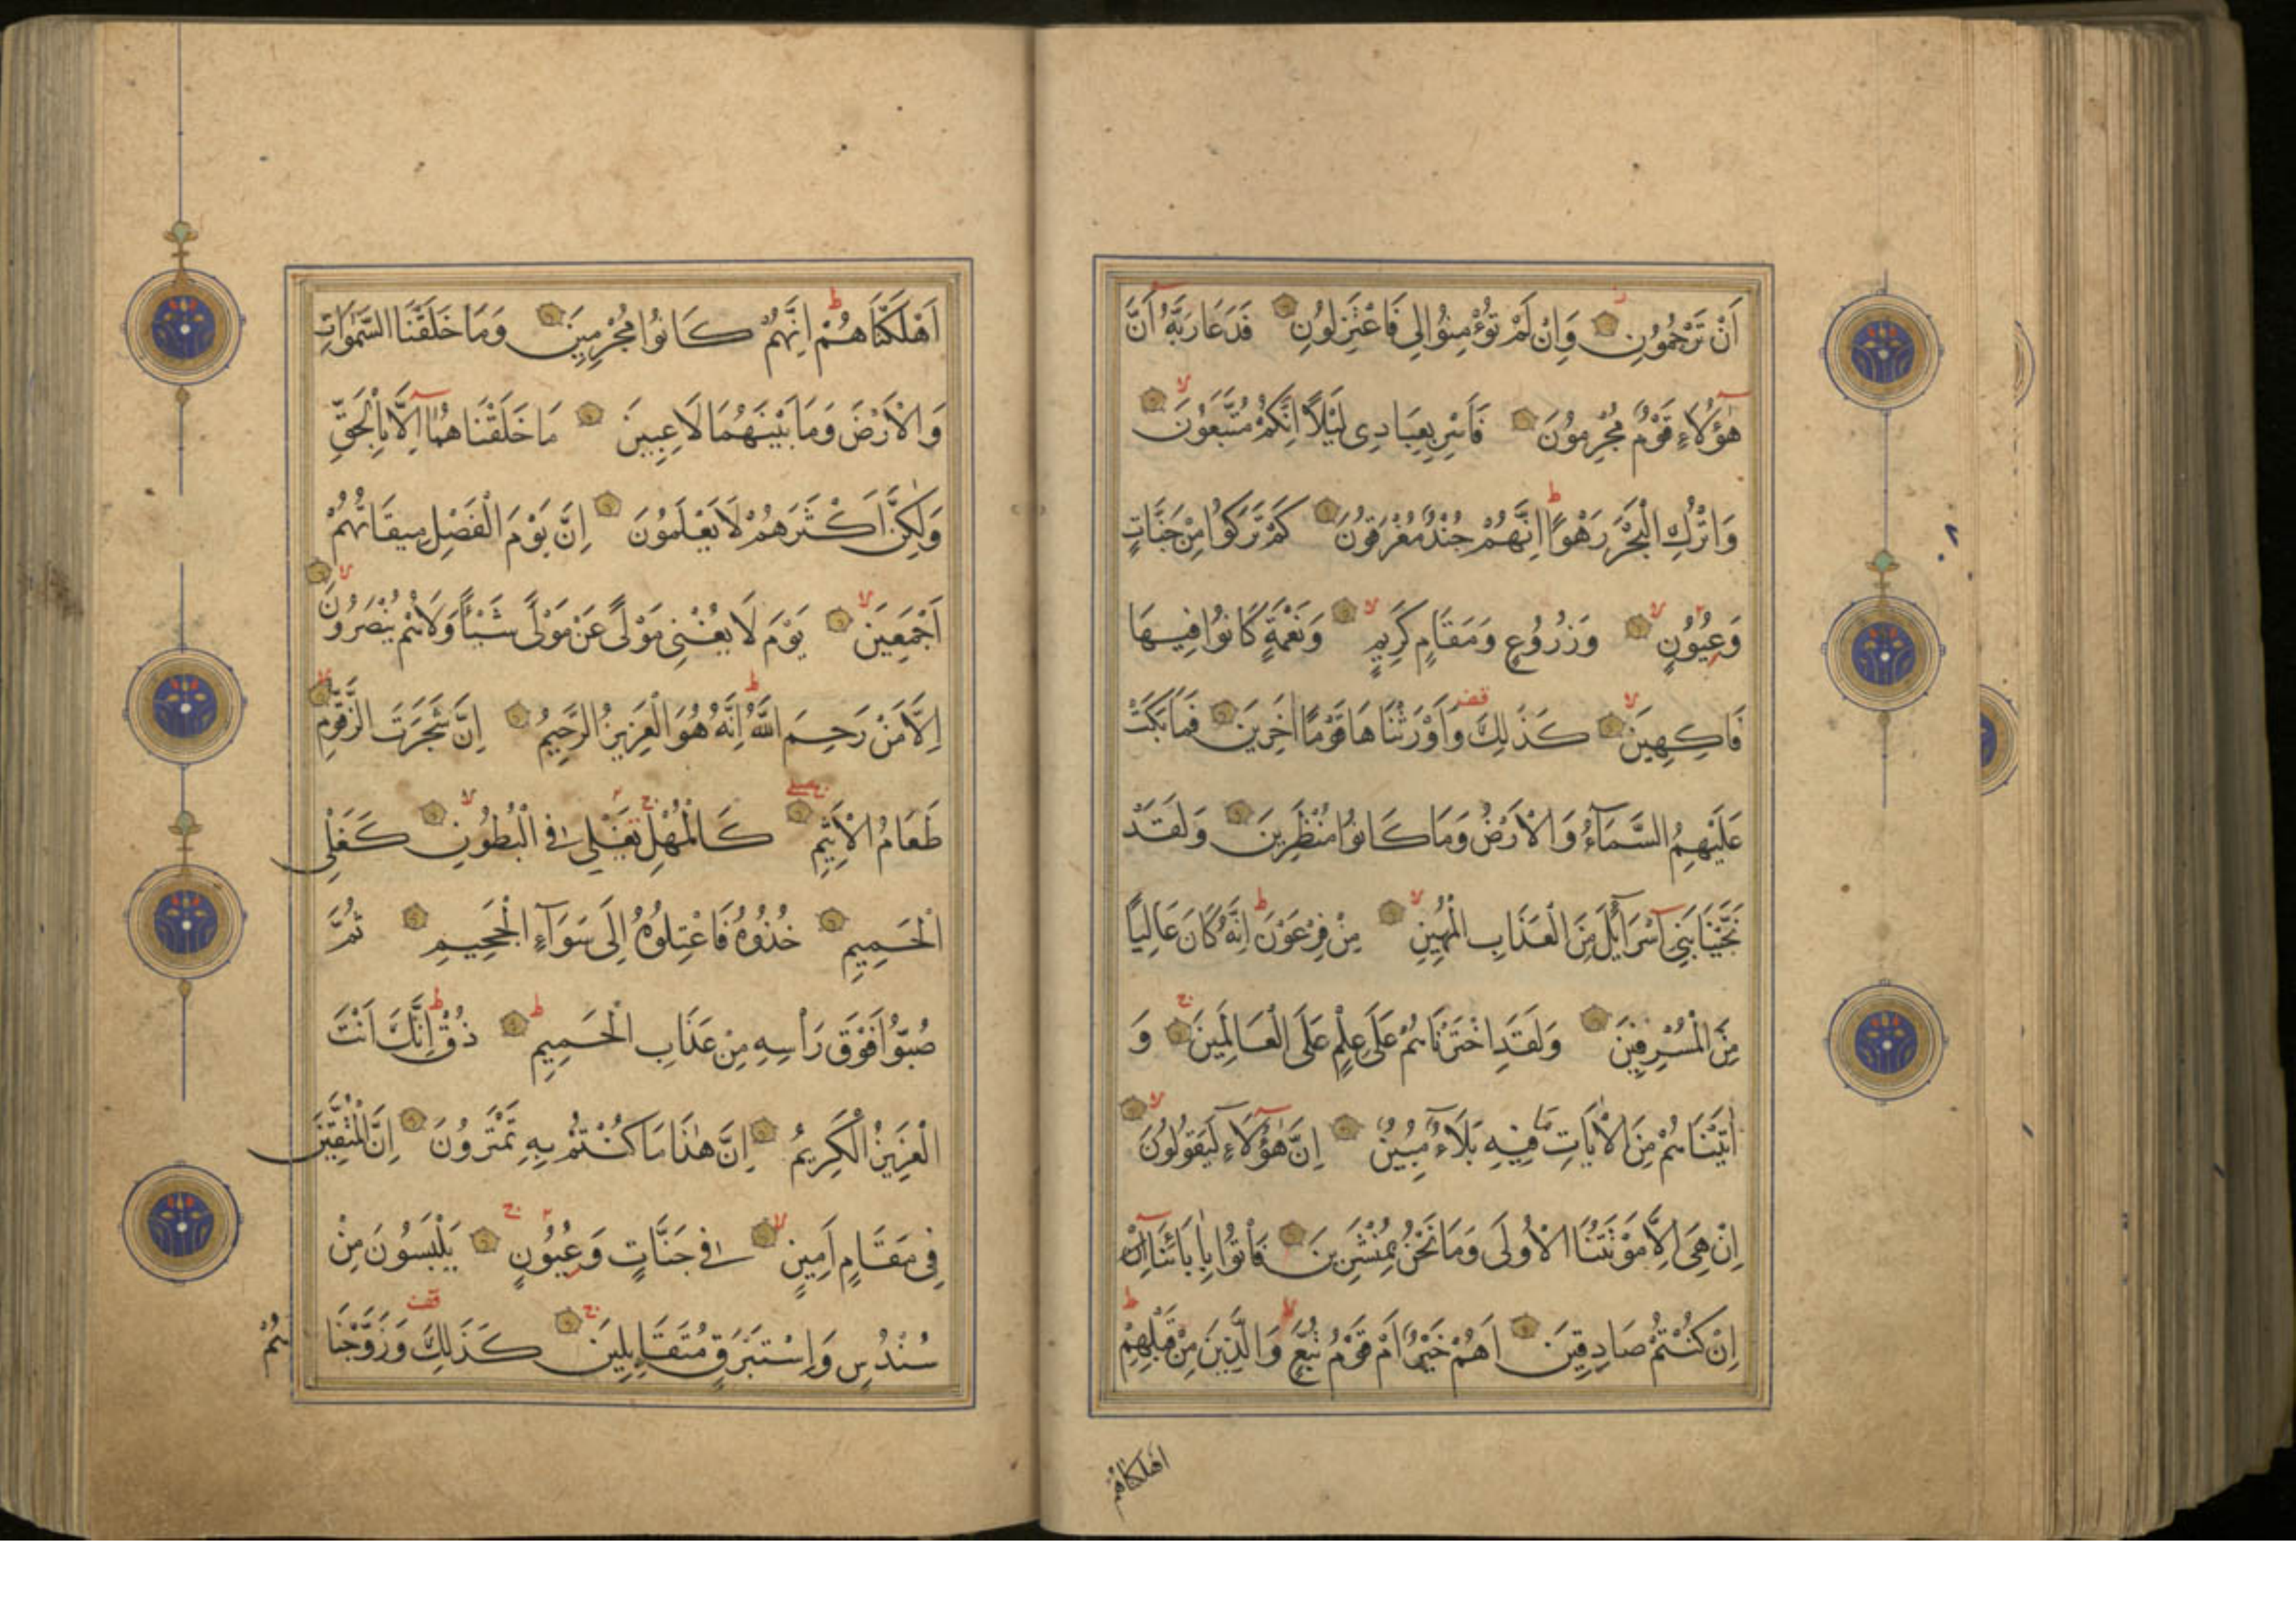 اَنْ تَرْجُمُونِ وَاِنْ لَمْ تُؤْمِنُوا لِي فَاعْتَزِلُونِ فَدَعَا رَبَّهُ اَنَّ
هٰؤُلَاءِ قَوْمٌ مُجْرِمُونَ فَاَسْرِ بِعِبَادِي لَيْلًا اِنَّكُمْ مُتَّبَعُونَ
وَاتْرُكِ الْبَحْرَ رَهْوًا اِنَّهُمْ جُنْدٌ مُغْرَقُونَ كَمْ تَرَكُوا مِنْ جَنَّاتٍ
وَعُيُونٍ وَزُرُوعٍ وَمَقَامٍ كَرِيمٍ وَنَعْمَةٍ كَانُوا فِيهَا
فَاكِهِينَ كَذٰلِكَ وَاَوْرَثْنَاهَا قَوْمًا اٰخَرِينَ فَمَا بَكَتْ
عَلَيْهِمُ السَّمَآءُ وَالْاَرْضُ وَمَا كَانُوا مُنْظَرِينَ وَلَقَدْ
نَجَّيْنَا بَنِي اِسْرَآئِلَ مِنَ الْعَذَابِ الْمُهِينِ مِنْ فِرْعَوْنَ اِنَّهُ كَانَ عَالِيًا
مِنَ الْمُسْرِفِينَ وَلَقَدِ اخْتَرْنَاهُمْ عَلَى عِلْمٍ عَلَى الْعَالَمِينَ وَ
اٰتَيْنَاهُمْ مِنَ الْاٰيَاتِ مَا فِيهِ بَلَاءٌ مُبِينٌ اِنَّ هٰؤُلَاءِ لَيَقُولُونَ
اِنْ هِيَ اِلَّا مَوْتَتُنَا الْاُولَى وَمَا نَحْنُ بِمُنْشَرِينَ فَاْتُوا بِاٰبَائِنَا اِنْ
اِنْ كُنْتُمْ صَادِقِينَ اَهُمْ خَيْرٌ اَمْ قَوْمُ تُبَّعٍ وَالَّذِينَ مِنْ قَبْلِهِمْ
اهلكناهم
اَهْلَكْنَاهُمْ اِنَّهُمْ كَانُوا مُجْرِمِينَ وَمَا خَلَقْنَا السَّمٰوَاتِ
وَالْاَرْضَ وَمَا بَيْنَهُمَا لَاعِبِينَ مَا خَلَقْنَاهُمَا اِلَّا بِالْحَقِّ
وَلٰكِنَّ اَكْثَرَهُمْ لَا يَعْلَمُونَ اِنَّ يَوْمَ الْفَصْلِ مِيقَاتُهُمْ
اَجْمَعِينَ يَوْمَ لَا يُغْنِي مَوْلًى عَنْ مَوْلًى شَيْئًا وَلَا هُمْ يُنْصَرُونَ
اِلَّا مَنْ رَحِمَ اللّٰهُ اِنَّهُ هُوَ الْعَزِيزُ الرَّحِيمُ اِنَّ شَجَرَتَ الزَّقُّومِ
طَعَامُ الْاَثِيمِ كَالْمُهْلِ تَغْلِي فِي الْبُطُونِ كَغَلْيِ
الْحَمِيمِ خُذُوهُ فَاعْتِلُوهُ اِلَى سَوَآءِ الْجَحِيمِ ثُمَّ
صُبُّوا فَوْقَ رَاْسِهِ مِنْ عَذَابِ الْحَمِيمِ ذُقْ اِنَّكَ اَنْتَ
الْعَزِيزُ الْكَرِيمُ اِنَّ هٰذَا مَا كُنْتُمْ بِهِ تَمْتَرُونَ اِنَّ الْمُتَّقِينَ
فِي مَقَامٍ اَمِينٍ فِي جَنَّاتٍ وَعُيُونٍ يَلْبَسُونَ مِنْ
سُنْدُسٍ وَاِسْتَبْرَقٍ مُتَقَابِلِينَ كَذٰلِكَ وَزَوَّجْنَا
هُمْ